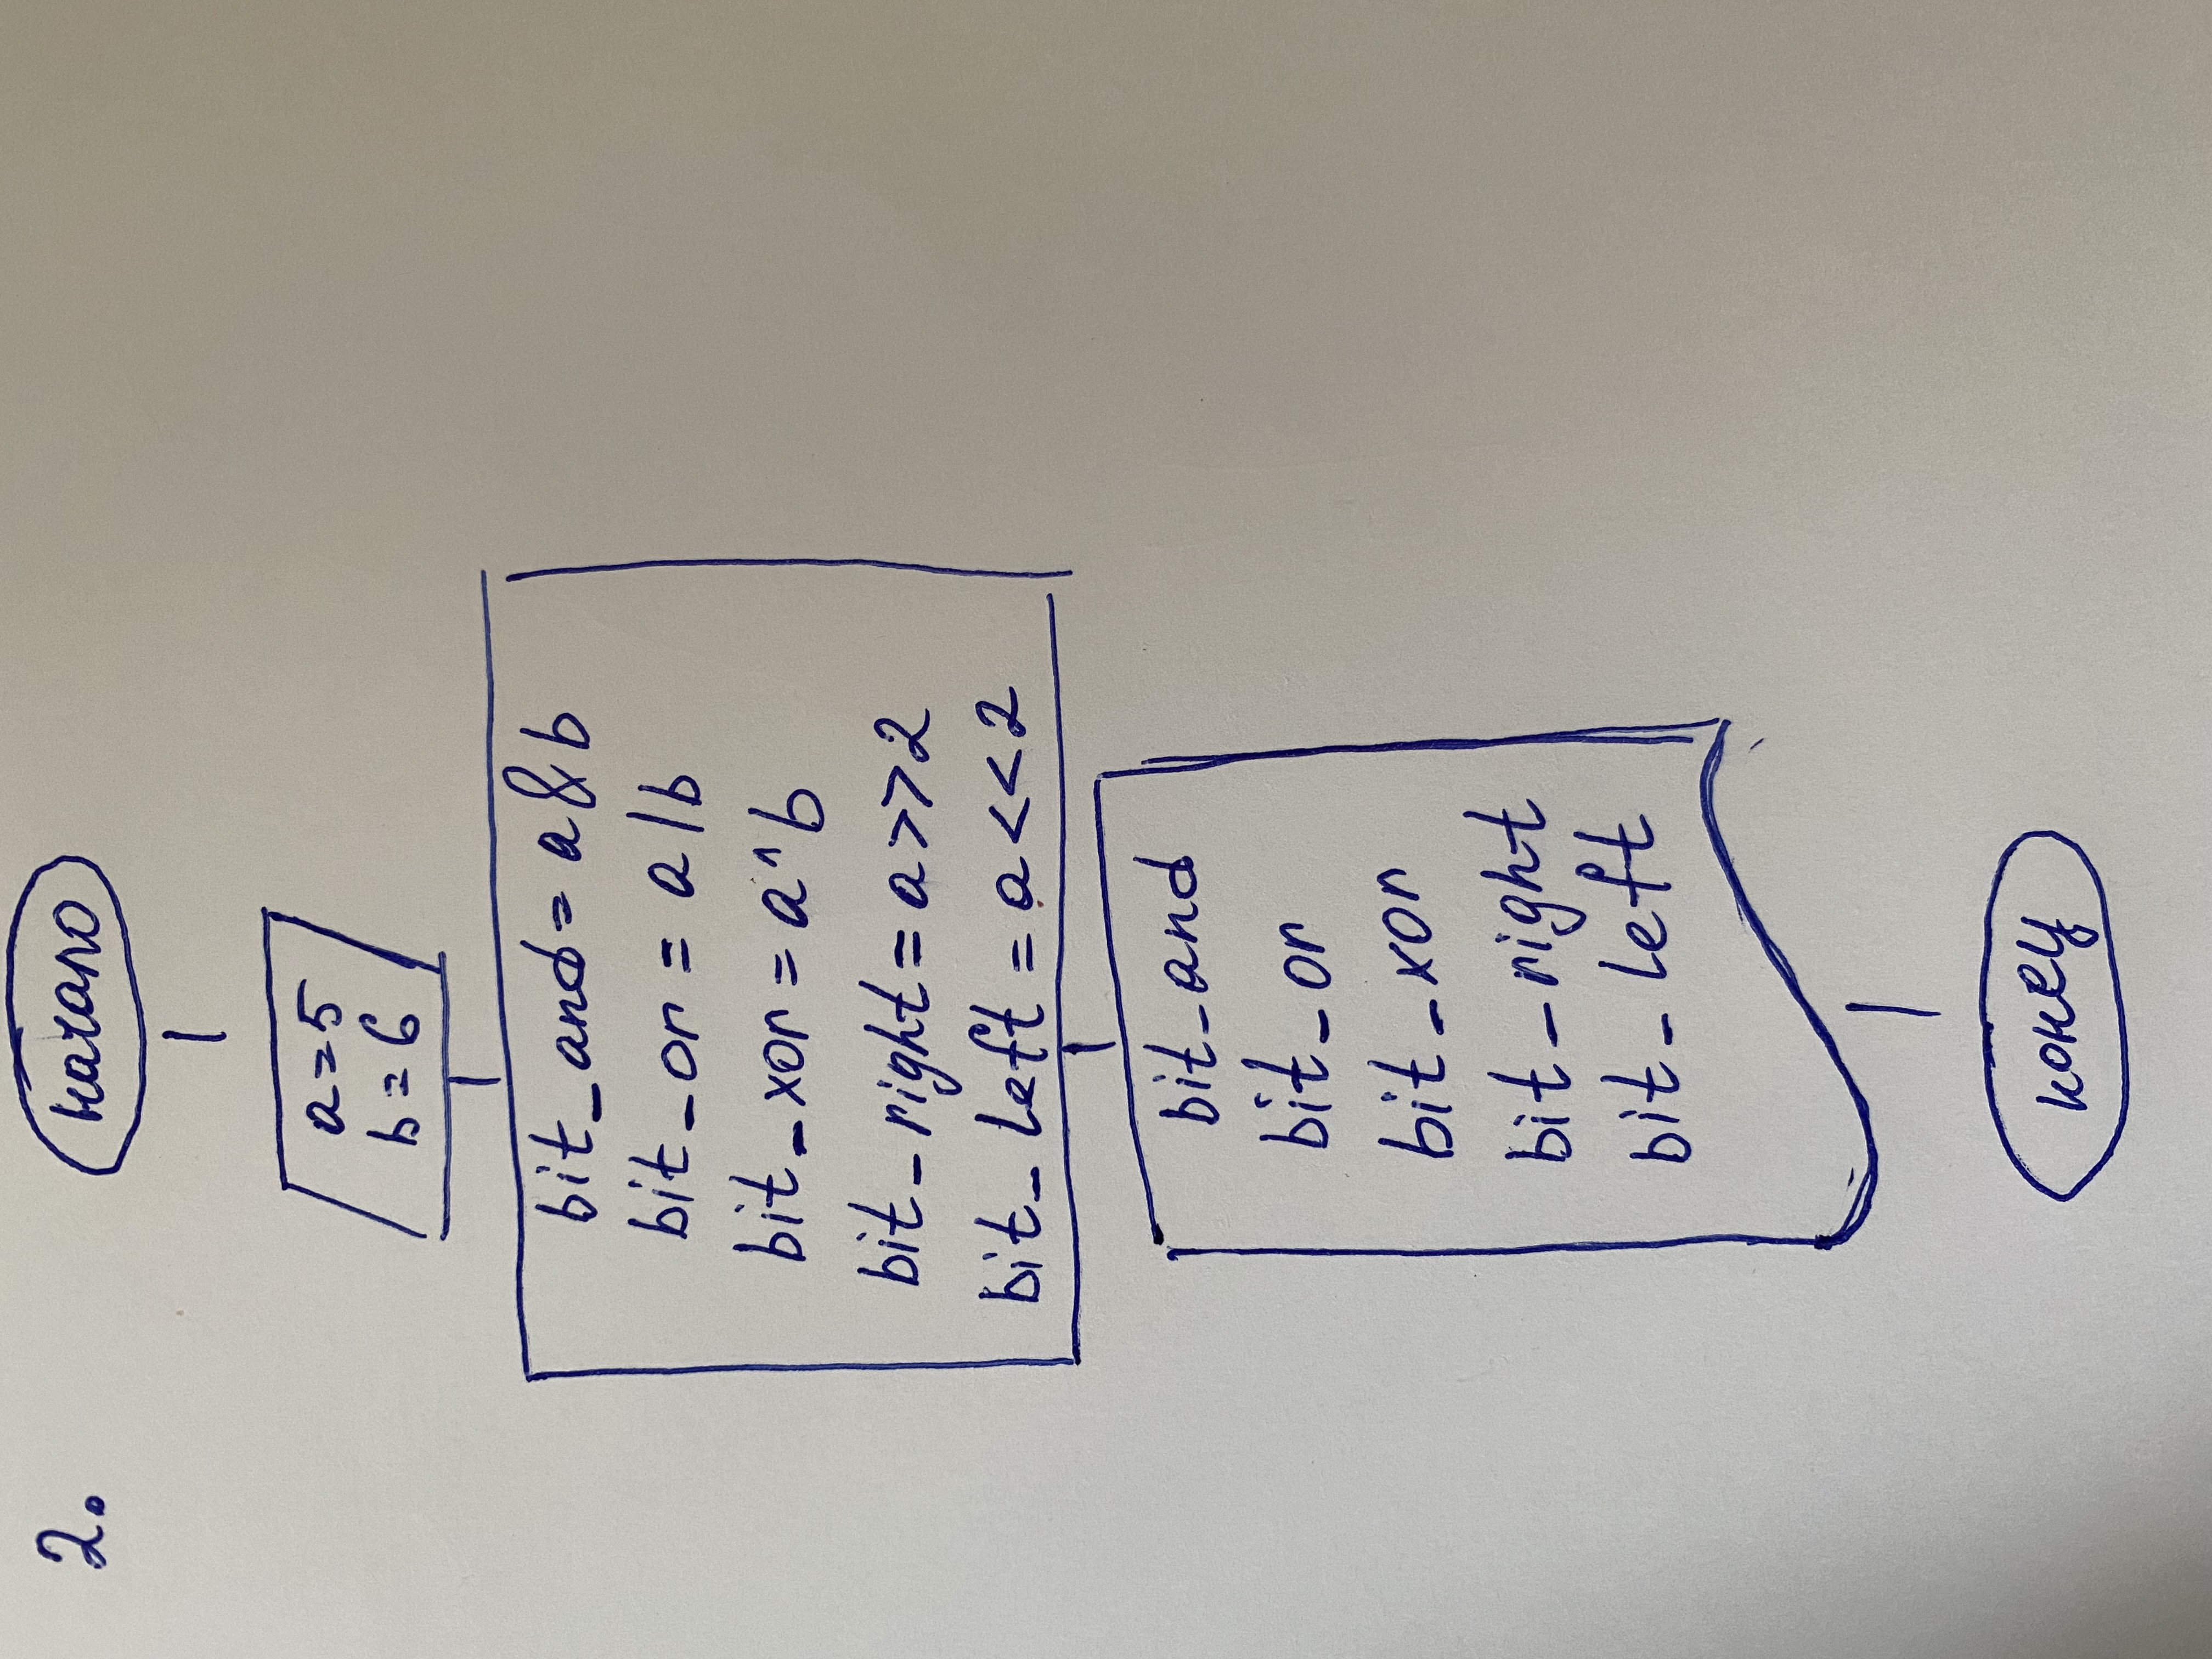 2.
начало
a=5
b=6
bit_and= a&b
bit_or = a|b
bit_xor = a^b
bit_right = a>>2
bit_left = a<<2
bit_and
bit_or
bit_xor
bit_right
bit_left
конец